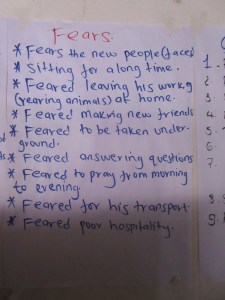 Fears
* Fears the new people (faces)
* Sitting for a long time.
* Feared leaving his work,
(rearing animals) at home.
* Feared making new friends
* Feared to be taken under-
ground.
* Feared answering questions
* Feared to pray from morning
to evening.
* Feared for his transport.
* Feared poor hospitality.
1.
2.
3.
4.
5.
6.
7.
8.
9.